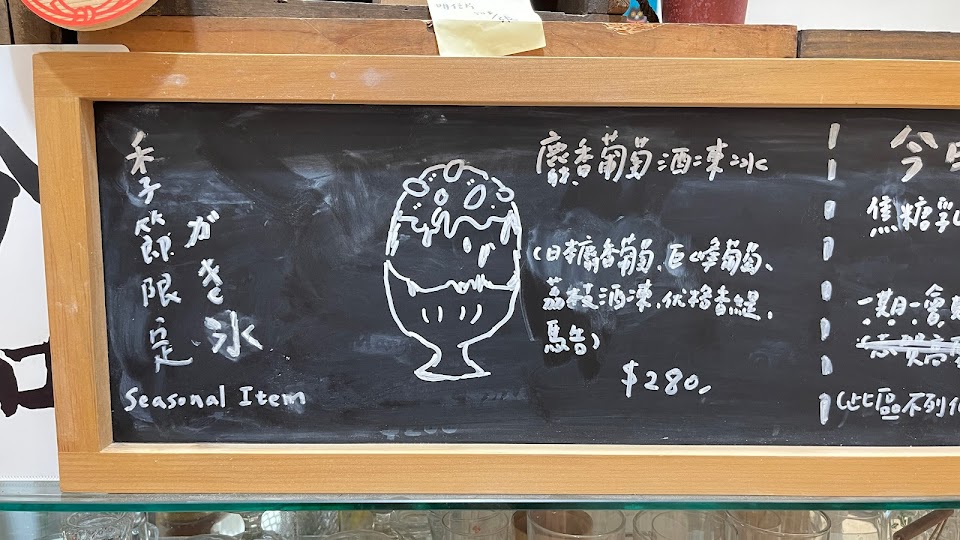 季節限定
がき氷
Seasonal Item
麝香葡萄酒凍冰
(日本麝香葡萄、巨峰葡萄、
荔枝酒凍、伏格香緹、
馬告)
$280.
今
焦糖乳
一期一會
(此區不列